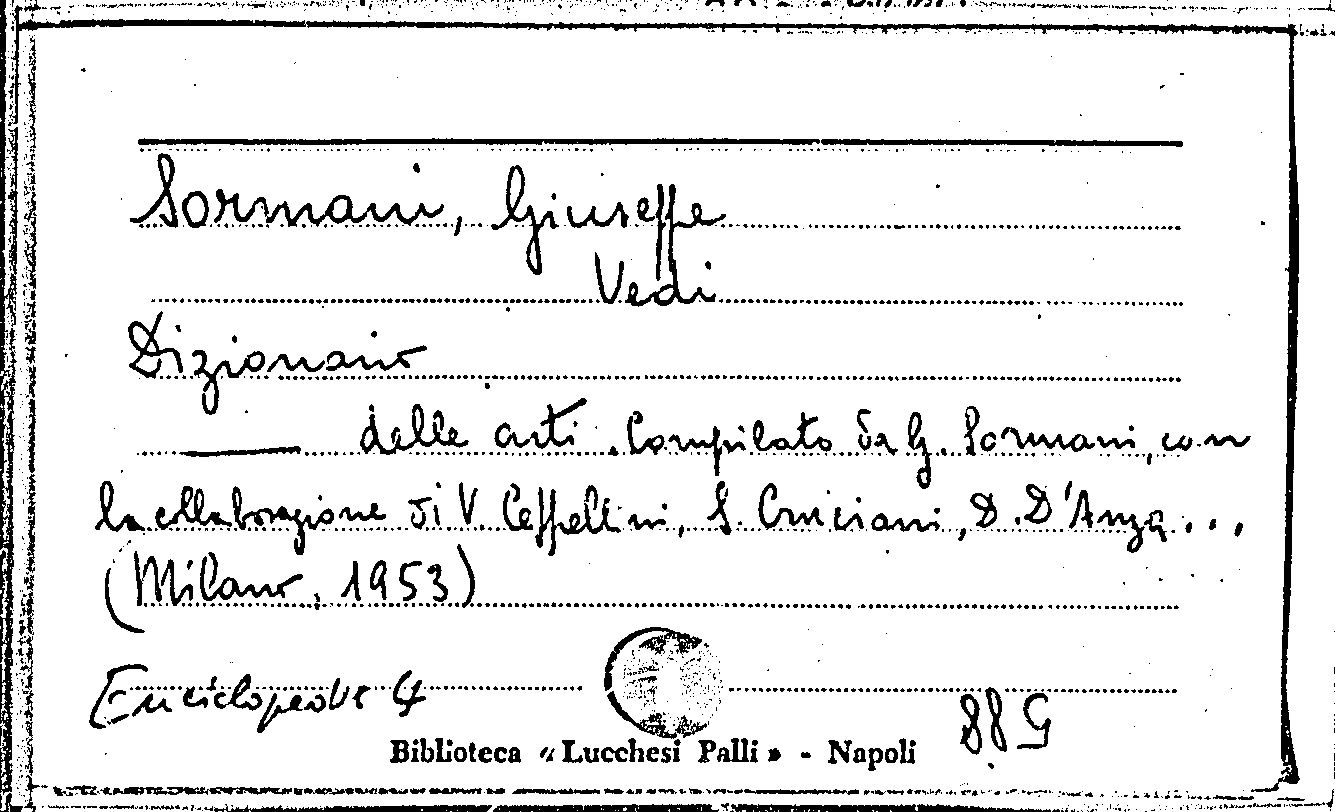 Sormani, Giuseppe
Vedi
Dizionario
——— delle arti. Compilato da G. Sormani, con
la collaborazione di V. Ceffellini, S. Cruciani, D. D'Anza...,
(Milano, 1953)
Enciclopedie 4
588
Biblioteca «Lucchesi Palli» - Napoli